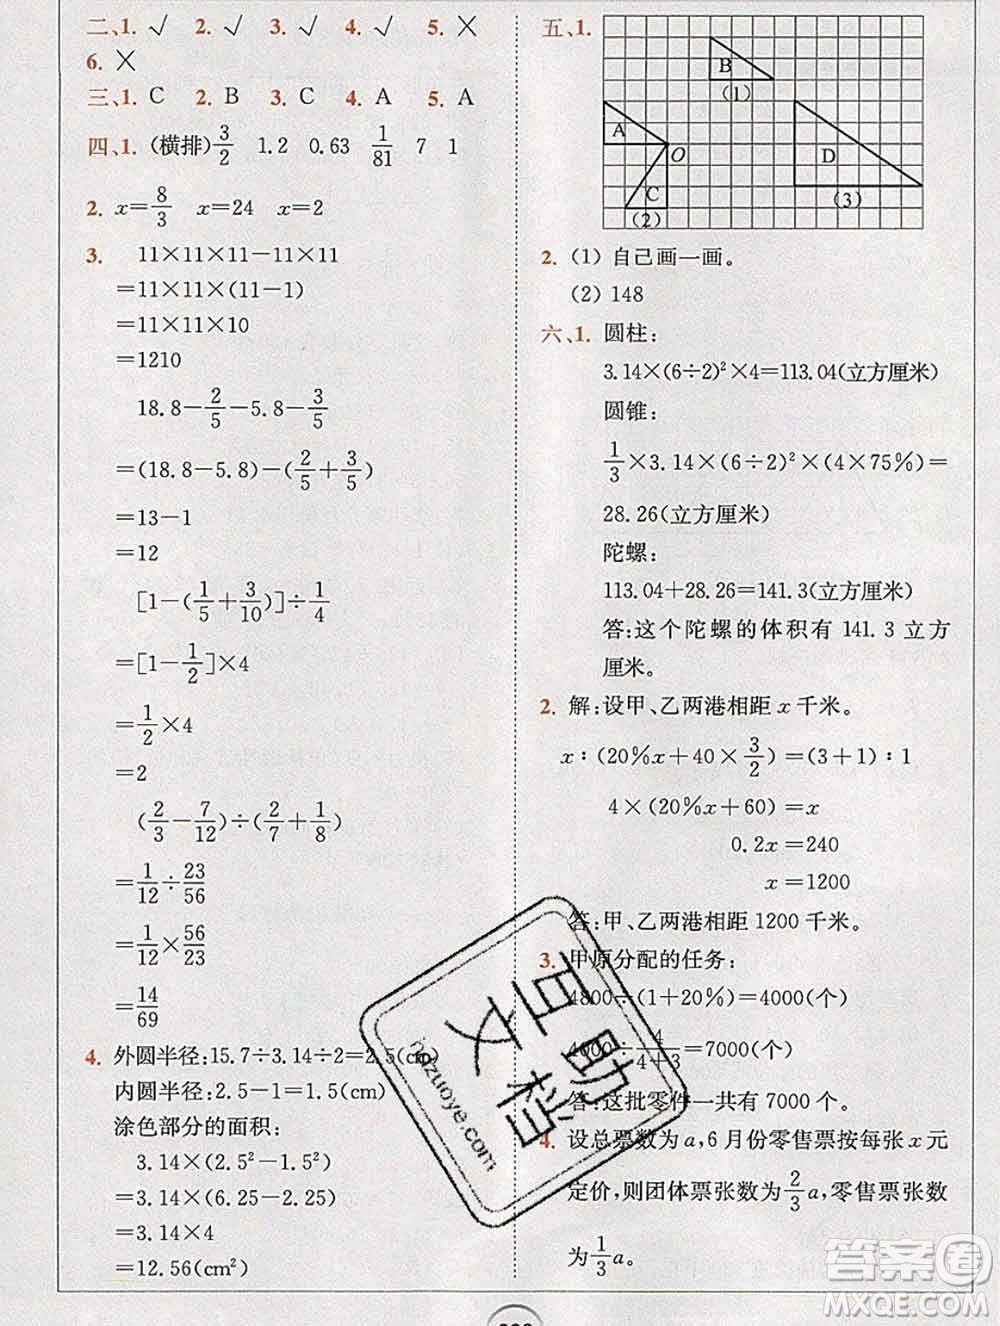 二、1. √ 2. √ 3. √ 4. √ 5. ×
6. ×
三、1. C 2. B 3. C 4. A 5. A
四、1. (横排) 3/2 1.2 0.63 1/81 7 1
2. x=8/3 x=24 x=2
3. 11×11×11-11×11
=11×11×(11-1)
=11×11×10
=1210
18.8-2/5-5.8-3/5
=(18.8-5.8)-(2/5+3/5)
=13-1
=12
[1-(1/5+3/10)]÷1/4
=[1-1/2]×4
=1/2×4
=2
(2/3-7/12)÷(2/7+1/8)
=1/12÷23/56
=1/12×56/23
=14/69
4. 外圆半径:15.7÷3.14÷2=2.5(cm)
内圆半径:2.5-1=1.5(cm)
涂色部分的面积:
3.14×(2.5²-1.5²)
=3.14×(6.25-2.25)
=3.14×4
=12.56(cm²)
五、1.
B
(1)
A
O
D
C
(2)
(3)
2. (1) 自己画一画。
(2) 148
六、1. 圆柱:
3.14×(6÷2)²×4=113.04(立方厘米)
圆锥:
1/3×3.14×(6÷2)²×(4×75%)=
28.26(立方厘米)
陀螺:
113.04+28.26=141.3(立方厘米)
答:这个陀螺的体积有 141.3 立方
厘米。
2. 解:设甲、乙两港相距 x 千米。
x:(20%x+40×3/2)=(3+1):1
4×(20%x+60)=x
0.2x=240
x=1200
答:甲、乙两港相距 1200 千米。
3. 甲原分配的任务:
4800÷(1+20%)=4000(个)
4000÷4/4+3=7000(个)
答:这批零件一共有 7000 个。
4. 设总票数为 a,6 月份零售票按每张 x 元
定价,则团体票张数为 2/3 a,零售票张数
为 1/3 a。
百文助档
hqzuoye.com
答案圈
MXQE.COM